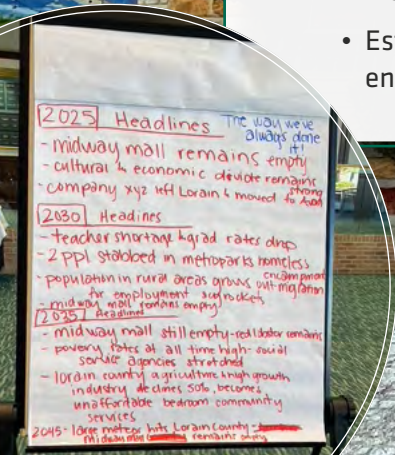 • Es
en
2025 Headlines
The way we've
always done
it!
- midway mall remains empty
- cultural & economic divide remains
strong
- company xyz left Lorain & moved to
2030 Headines
- teacher shortage & grad rates drop
- 2 ppl stabbed in metroparks homeless
encampment
- population in rural areas grows out-migration
for employment skyrockets
- midway mall remains empty
2035 Headlines
- midway mall still empty-red lobster remains
- poverty rates at all time high-social
service agencies stretched
- lorain county agriculture & high growth
industry declines 50%, becomes
unaffordable bedroom community
services
2045 - large meteor hits Lorain County -
midway mall remains empty